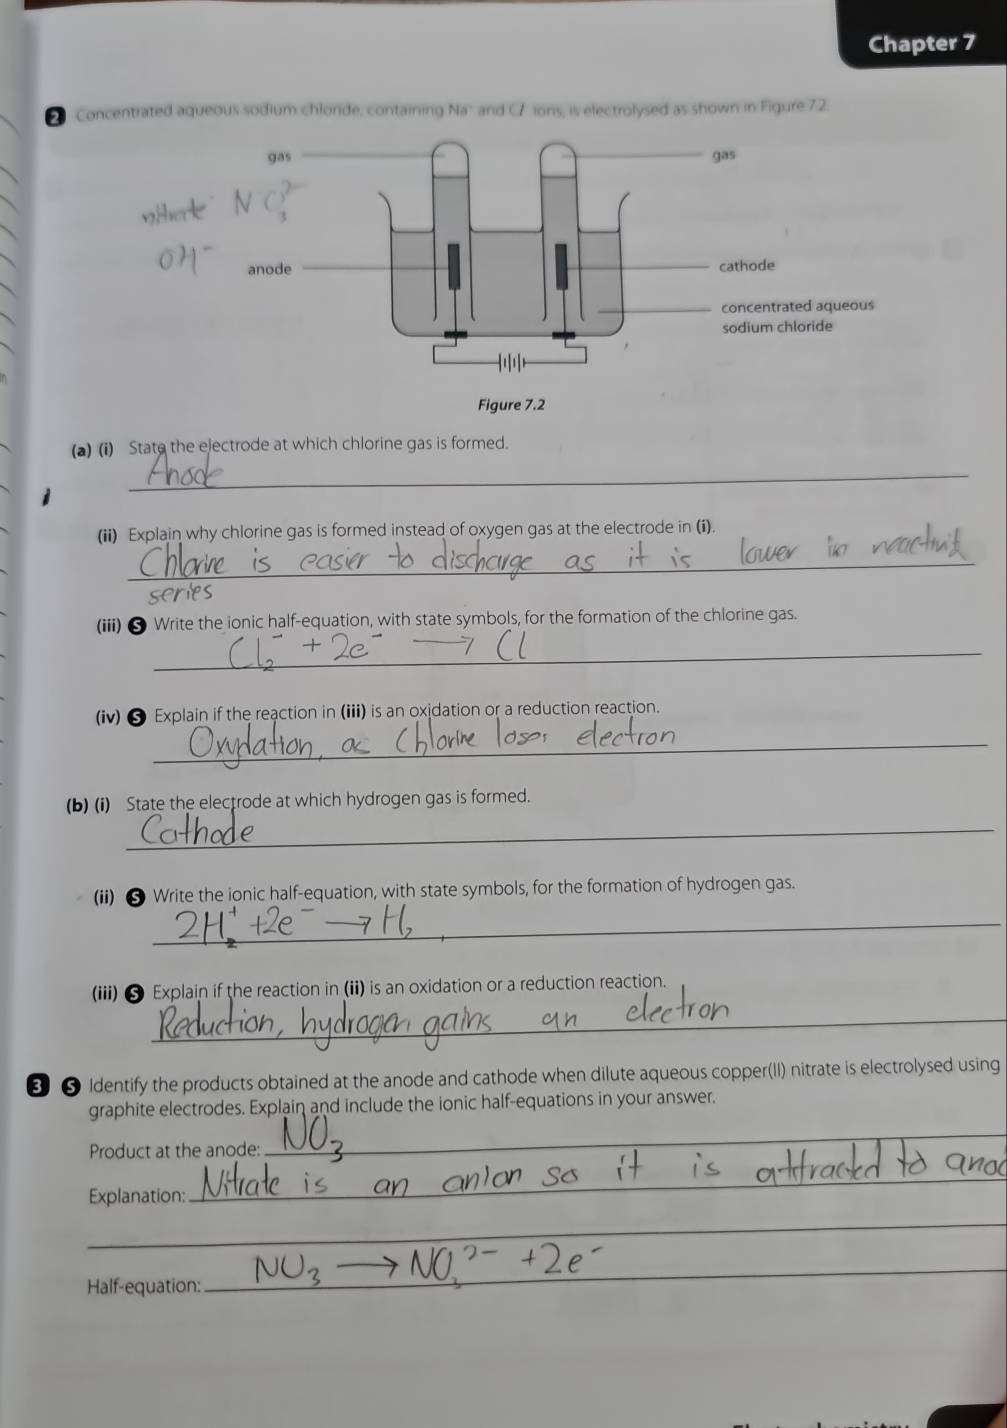 Chapter 7
2 Concentrated aqueous sodium chloride, containing Na⁺ and Cl⁻ ions, is electrolysed as shown in Figure 7.2.
gas
gas
nitrate NO₃²⁻
OH⁻
anode
cathode
concentrated aqueous
sodium chloride
Figure 7.2
(a) (i) State the electrode at which chlorine gas is formed.
Anode
(ii) Explain why chlorine gas is formed instead of oxygen gas at the electrode in (i).
Chlorine is easier to discharge as it is lower in reactivit
series
(iii) S Write the ionic half-equation, with state symbols, for the formation of the chlorine gas.
Cl₂⁻ + 2e⁻ → Cl
(iv) S Explain if the reaction in (iii) is an oxidation or a reduction reaction.
Oxydation, as Chlorine loses electron
(b) (i) State the electrode at which hydrogen gas is formed.
Cathode
(ii) S Write the ionic half-equation, with state symbols, for the formation of hydrogen gas.
2H₂⁺ + 2e⁻ → H₂
(iii) S Explain if the reaction in (ii) is an oxidation or a reduction reaction.
Reduction, hydrogen gains an electron
3 S Identify the products obtained at the anode and cathode when dilute aqueous copper(II) nitrate is electrolysed using
graphite electrodes. Explain and include the ionic half-equations in your answer.
Product at the anode: NO₃
Explanation: Nitrate is an anion so it is attracted to anod
Half-equation: NO₃ → NO₃²⁻ + 2e⁻